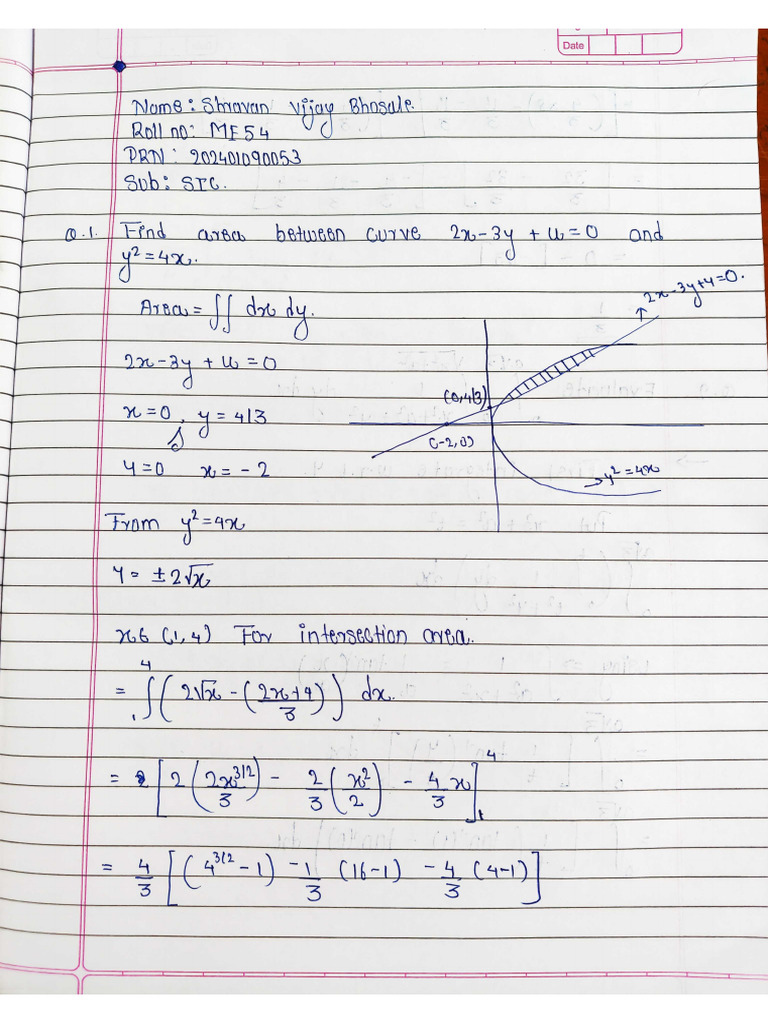 Date
Name: Shravan Vijay Bhosale.
Roll no: ME54
PRN: 202401090053
Sub: STC.
Q.1. Find area between curve 2x-3y+4=0 and
y²=4x.
Area = ∫∫ dx dy.
2x-3y+4=0.
2x-3y+4=0
(0,4/3)
x=0, y=4/3
(-2,0)
y=0 x=-2
→y²=4x
From y²=4x
y= ±2√x
x∈(1,4) For intersection area.
= ₁∫⁴ (2√x - (2x+4)/3) dx.
= [2(2x^3/2 / 3) - 2/3 (x²/2) - 4/3 x]₁⁴
= 4/3 [(4^3/2 - 1) - 1/3 (16-1) - 4/3 (4-1)]